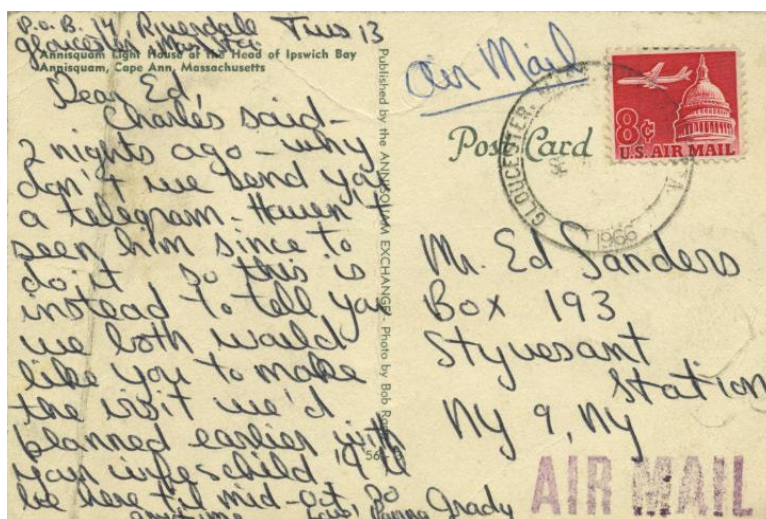 P.O.B. 14, Riverdale Tues 13
Gloucester
Annisquam Light House at the Head of Ipswich Bay
Annisquam, Cape Ann, Massachusetts
Dear Ed,
Charles said -
2 nights ago - why
don't we send you
a telegram - Haven't
seen him since to
do it so this is
instead to tell you
we both would
like you to make
the visit we'd
planned earlier with
your wife & child I'll
be here til mid-oct, so
anytime Love, Panna Grady
Published by the ANNISQUAM EXCHANGE - Photo by Bob
56
Air Mail
Post Card
8¢
U.S. AIR MAIL
GLOUCESTER,
1966
Mr. Ed Sanders
Box 193
Styvesant
Station
NY 9, NY
AIR MAIL